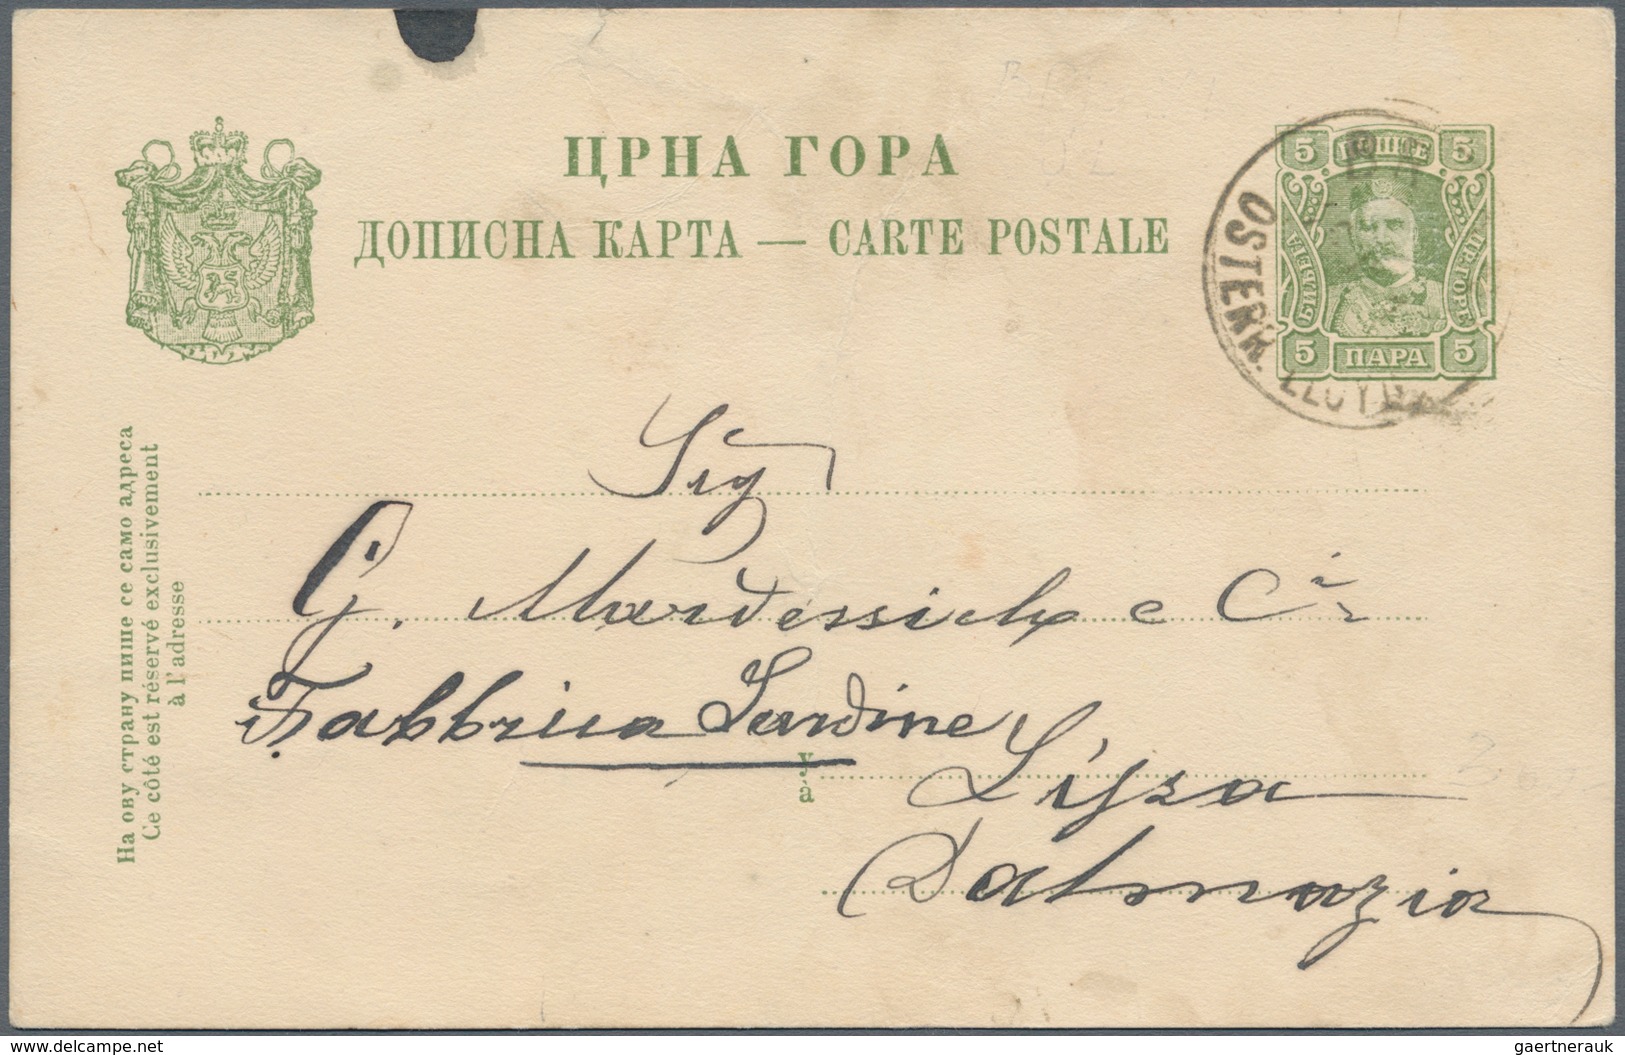 ЦРНА ГОРА
ДОПИСНА КАРТА — CARTE POSTALE
5 5
ПОШТЕ
ЦР. ГОРЕ
5 ПАРА 5
OSTERR. LLOYD
На ову страну пише се само адреса
Ce côté est réservé exclusivement
à l'adresse
Sig
G. Mardessich e C
Fabbrica Sardine
у
à
Lissa
Dalmazia
www.delcampe.net
gaertnerauk